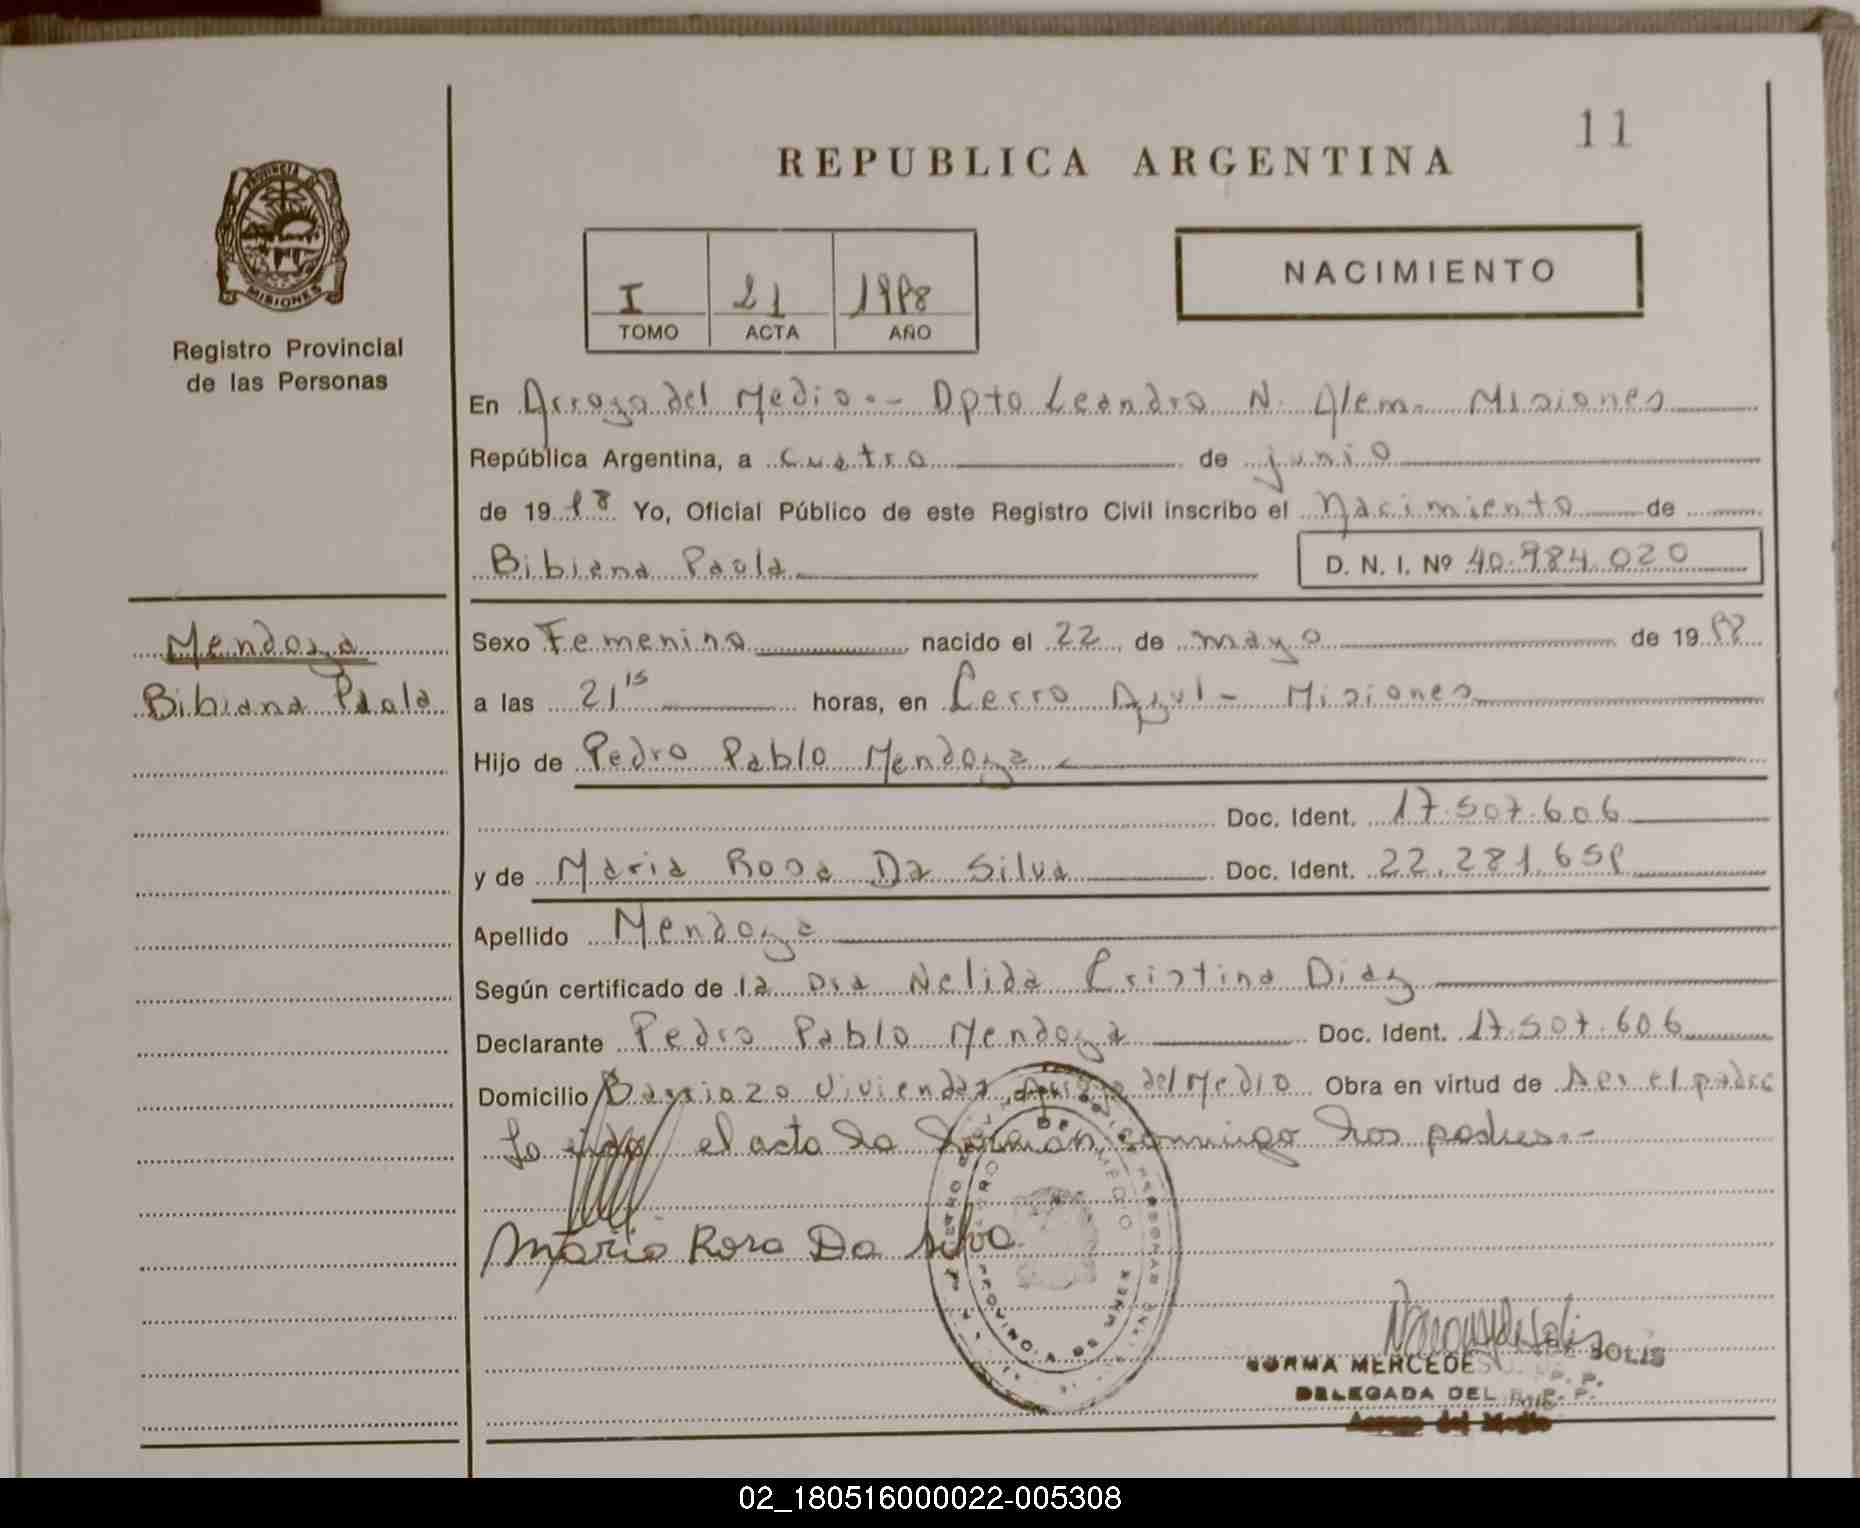 11
REPUBLICA ARGENTINA
PROVINCIA
MISIONES
I 21 1998
TOMO ACTA AÑO
NACIMIENTO
Registro Provincial
de las Personas
En Arroyo del Medio.- Dpto Leandro N. Alem. Misiones
República Argentina, a cuatro de junio
de 1998 Yo, Oficial Público de este Registro Civil inscribo el Nacimiento de
Bibiana Paola D. N. I. Nº 40.984.020
Mendoza
Bibiana Paola
Sexo Femenino nacido el 22 de mayo de 1998
a las 21 15 horas, en Cerro Azul - Misiones
Hijo de Pedro Pablo Mendoza
Doc. Ident. 17.507.606
y de Maria Rosa Da Silva Doc. Ident. 22.281.659
Apellido Mendoza
Según certificado de la Dra Nelida Cristina Diaz
Declarante Pedro Pablo Mendoza Doc. Ident. 17.507.606
Domicilio Barrio 20 Viviendas, Arroyo del Medio Obra en virtud de ser el padre
el acto la conmigo los padres.-
Maria Rosa Da Silva
PROVINCIA DE
NORMA MERCEDES SOLIS
DELEGADA DEL R. P. P.
Arroyo del Medio
02_180516000022-005308